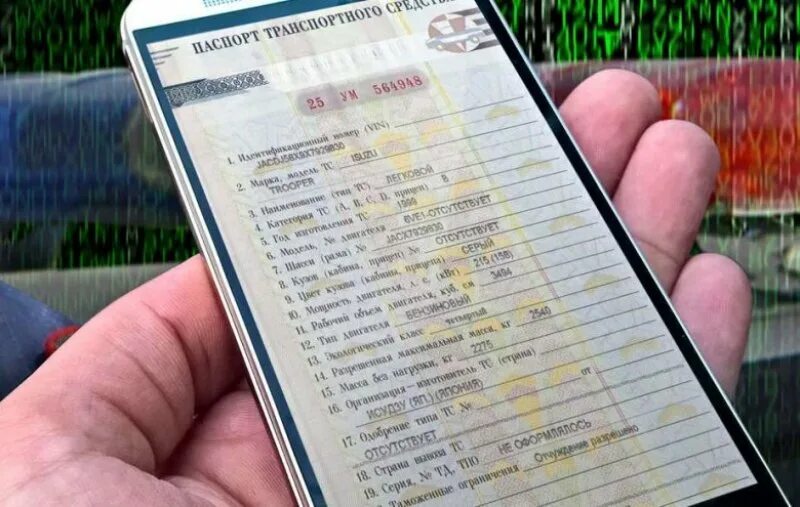 ПАСПОРТ ТРАНСПОРТНОГО СРЕДСТВА
25 УМ 564948
1. Идентификационный номер (VIN)
JACDJ58X8X7929830
2. Марка, модель ТС ISUZU
TROOPER
3. Наименование (тип ТС) ЛЕГКОВОЙ
4. Категория ТС (А, В, С, D, прицеп) В
5. Год изготовления ТС 1999
6. Модель, № двигателя 6VE1-ОТСУТСТВУЕТ
7. Шасси (рама) № JACX7929830
8. Кузов (кабина, прицеп) № ОТСУТСТВУЕТ
9. Цвет кузова (кабины, прицепа) СЕРЫЙ
10. Мощность двигателя, л. с. (кВт) 215 (158)
11. Рабочий объем двигателя, куб. см 3494
12. Тип двигателя БЕНЗИНОВЫЙ
13. Экологический класс четвертый
14. Разрешенная максимальная масса, кг 2540
15. Масса без нагрузки, кг 2275
16. Организация – изготовитель ТС (страна)
ИСУДЗУ (ЯП.) (ЯПОНИЯ)
17. Одобрение типа ТС № от
ОТСУТСТВУЕТ
18. Страна вывоза ТС НЕ ОФОРМЛЯЛОСЬ
19. Серия, № ТД, ТПО
Таможенные ограничения Отчуждение разрешено